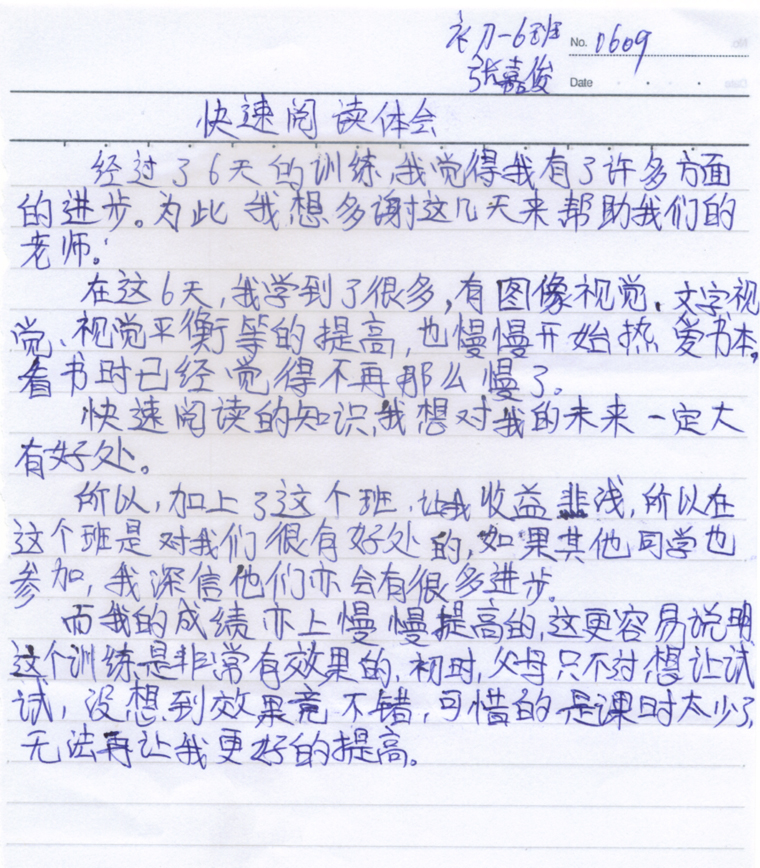 初一6班 No. 0609
张嘉俊 Date
快速阅读体会
经过了6天的训练,我觉得我有了许多方面
的进步。为此我想多谢这几天来帮助我们的
老师。
在这6天,我学到了很多,有图像视觉、文字视
觉、视觉平衡等的提高,也慢慢开始热爱书本,
看书时已经觉得不再那么慢了。
快速阅读的知识,我想对我的未来一定大
有好处。
所以,加上了这个班,让我收益非浅,所以在
这个班是对我们很有好处的,如果其他同学也
参加,我深信他们亦会有很多进步。
而我的成绩亦上慢慢提高的,这更容易说明
这个训练是非常有效果的,初时,父母只不过想让试
试,没想到效果竟不错,可惜的是课时太少了,
无法再让我更好的提高。